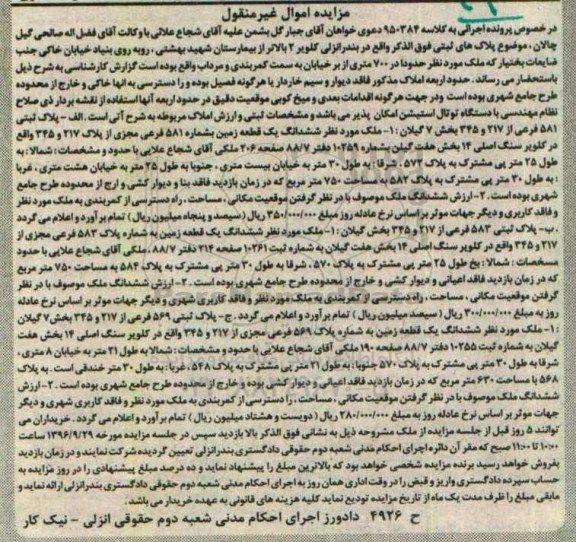 مزایده اموال غیرمنقول
در خصوص پرونده اجرائی به کلاسه ۹۵۰۳۸۴ دعوی خواهان آقای جبار گل بشمن علیه آقای شجاع علائی با وکالت آقای فضل اله صالحی گیل
چالان ، موضوع پلاک های ثبتی فوق الذکر واقع در بندرانزلی کلویر ۲ بالاتر از بیمارستان شهید بهشتی ، روبه روی بنیاد خیابان خاکی جنب
ضایعات بختیار که ملک مورد نظر حدودا در ۷۰۰ متری از بر خیابان به سمت کمربندی و مرداب واقع بوده است گزارش کارشناسی به شرح ذیل
باستحضار می رساند. حدود اربعه املاک مذکور فاقد دیوار و سیم خاردار یا هرگونه فصیل بوده و را دسترسی به انها خاکی و خارج از محدوده
طرح جامع شهری بوده است ودر جهت هرگونه اقدامات بعدی و میخ کوبی موقعیت دقیق در حدود اربعه آنها استفاده از نقشه بردار ذی صلاح
نظام مهندسی با دستگاه توتال استیشن امکان پذیر می باشد و مشخصات ثبتی و ارزش املاک مربوطه به شرح آتی است. الف - پلاک ثبتی
۵۸۱ فرعی از ۲۱۷ و ۳۴۵ بخش ۷ گیلان :۱- ملک مورد نظر ششدانگ یک قطعه زمین بشماره ۵۸۱ فرعی مجزی از پلاک ۲۱۷ و ۳۴۵ واقع
در کلویر سنگ اصلی ۱۴ بخش هفت گیلن بشماره ۱۰۲۵۹ دفتر ۸۸/۷ صفحه ۲۰۶ ملکی آقای شجاع علایی با حدود و مشخصات : شمالا : به
طول ۲۵ متر پی مشترک به پلاک ۵۷۲ ، شرقا : به طول ۳۰ متر به خیابان بیست متری ، جنوبا به طول ۲۵ متر به خیابان هشت متری ، غربا
: به طول ۳۰ متر پی مشترک به پلاک ۵۸۲ به مساحت ۷۵۰ متر مربع که در زمان بازدید فاقد بنا و دیوار کشی و ارج از محدوده طرح جامع
شهری بوده است . ۲- ارزش ششدانگ ملک موصوف با در نظر گرفتن موقعیت مکانی ، مساحت ، راه دسترسی از کمربندی به ملک مورد نظر
و فاقد کاربری و دیگر جهات موثر بر اساس نرخ عادله روز بمبلغ ۳۵۰/۰۰۰/۰۰۰ ریال (سیصد و پنجاه میلیون ریال ) تمام بر آورد و اعلام می گردد
. ب- پلاک ثبتی ۵۸۳ فرعی از ۲۱۷ و ۳۴۵ بخش گیلان : ۱- ملک مورد نظر ششدانگ یک قطعه زمین به شماره پلاک ۵۸۳ فرعی مجزی از
۲۱۷ و ۳۴۵ واقع در کلویر سنگ اصلی ۱۴ بخش هفت گیلان به شماره ثبت ۱۰۲۶۱ صفحه ۲۱۴ دفتر ۸۸/۷ ،ملکی آقای شجاع علایی با حدود
مسخصات : شمالا : بخ طول ۲۵ متر پی مشترک به پلاک ۵۷۰ ، شرقا به طول ۳۰ متر پی مشترک به پلاک ۵۸۴ به مساحت ۷۵۰ متر مربع
که در زمان بازدید فاقد اعیانی و دیوار کشی و خارج از محدوده طرح جامع شهری بوده است . ۲- ارزش ششدانگ ملک موصوف با در نظر
گرفتن موقعیت مکانی ، مساحت ، راه دسترسی از کمربندی به ملک مورد نظر و فاقد کاربری شهری و دیگر جهات موثر بر اساس نرخ عادله
روز به مبلغ ۳۰۰/۰۰۰/۰۰۰ ریال ( سیصد میلیون ریال ) تمام بر آورد و اعلام می گردد . ج- پلاک ثبتی ۵۶۹ فرعی از ۲۱۷ و ۳۴۵ بخش۷ گیلان
: ۱- ملک مورد نظر ششدانگ یک قطعه زمین به شماره پلاک ۵۶۹ فرعی مجزی از ۲۱۷ و ۳۴۵ واقع در کلویر سنگ اصلی ۱۴ بخش هفت
گیلان به شماره ثبت ۱۰۲۵۵ دفتر ۸۸/۷ صفحه ۱۹۰ ملکی آقای شجاع علایی با حدود و مشخصات : شمالا به طول ۲۱ متر به خیابان ۸ متری ،
شرقا به طول ۳۰ متر پی مشترک به پلاک ۵۷۰ جنوبا : به طول ۲۱ متر پی مشترک به پلاک ۵۴۸ ، غربا : به طول ۳۰ متر خندقی است . به پلاک
۵۶۸ با مساحت ۶۳۰ متر مربع که در زمان بازدید فاقد اعیانی و دیوار کشی بوده و خارج از محدوده طرح جامع شهری بوده است . ۲- ارزش
ششدانگ ملک موصوف با در نظر گرفتن موقعیت مکانی ، مساحت ، را دسترسی از کمربندی به ملک مورد نظر و فاقد کاربری شهری و دیگر
جهات موثر بر اساس نرخ عادله روز به مبلغ ۲۸۰/۰۰۰/۰۰۰ ریال ( دویست و هشتاد میلیون ریال ) تمام بر آورد و اعلام می گردد . خریداران می
توانند ۵ روز قبل از جلسه مزایده از ملک مشروحه ذیل به نشانی فوق الذکر بالا بازدید سپس در جلسه مزایده مورخه ۱۳۹۶/۹/۲۹ ساعت
۱۰:۰۰ تا ۱۱:۰۰ صبح که مقر آن دائره اجرای احکام مدنی شعبه دوم حقوقی دادگستری بندرانزلی تعیین گردیده شرکت نمایند و در زمان بازدید
بفروش خواهد رسید برنده مزایده شخصی خواهد بود که بالاترین مبلغ را پیشنهاد نماید و ده درصد مبلغ پیشنهادی را در روز مزایده به
حساب سپرده دادگستری واریز و قبض را در وقت اداری همان روز به اجرای احکام مدنی شعبه دوم حقوقی دادگستری بندرانزلی ارائه نماید و
مابقی مبلغ را ظرف مدت یک ماه از تاریخ مزایده تودیع نماید کلیه هزینه های قانونی به عهده خریدار می باشد.
ح ۴۹۲۶ دادورز اجرای احکام مدنی شعبه دوم حقوقی انزلی - نیک کار